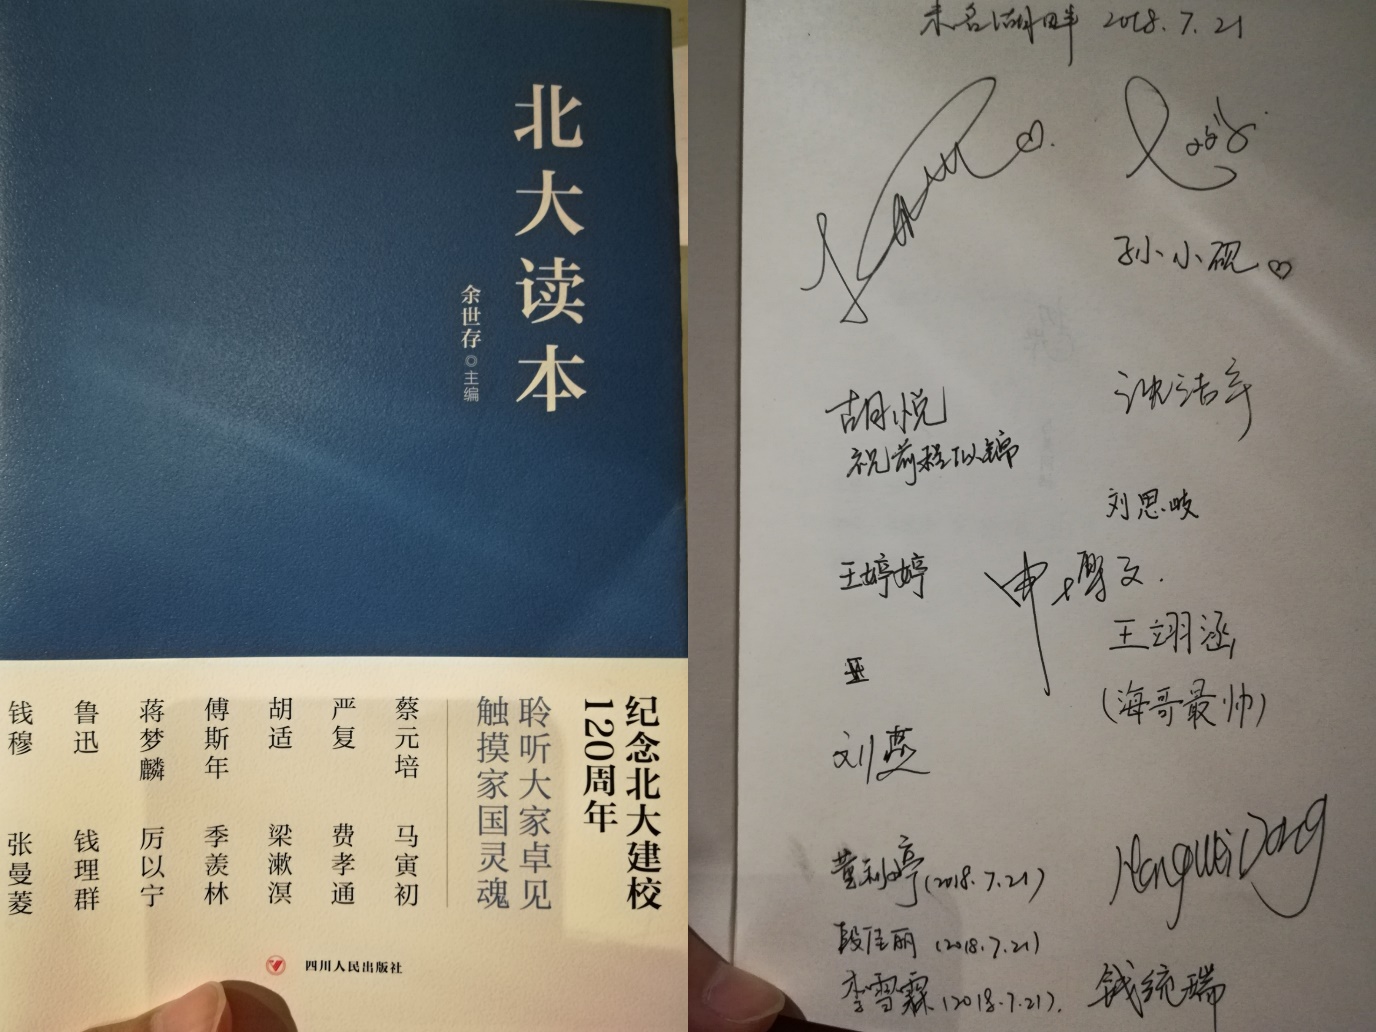 北大读本
余世存◎主编
纪念北大建校
120周年
聆听大家卓见
触摸家国灵魂
蔡元培 马寅初
严复 费孝通
胡适 梁漱溟
傅斯年 季羡林
蒋梦麟 厉以宁
鲁迅 钱理群
钱穆 张曼菱
四川人民出版社
未名湖畔 2018.7.21
孙小砚
胡悦
祝前程似锦
沈洁
刘思岐
王婷婷
申
王翊涵
(海哥最帅)
刘燕
董利婷(2018.7.21)
HongWei Dong
段佳丽 (2018.7.21)
李雪霖(2018.7.21).
钱统瑞